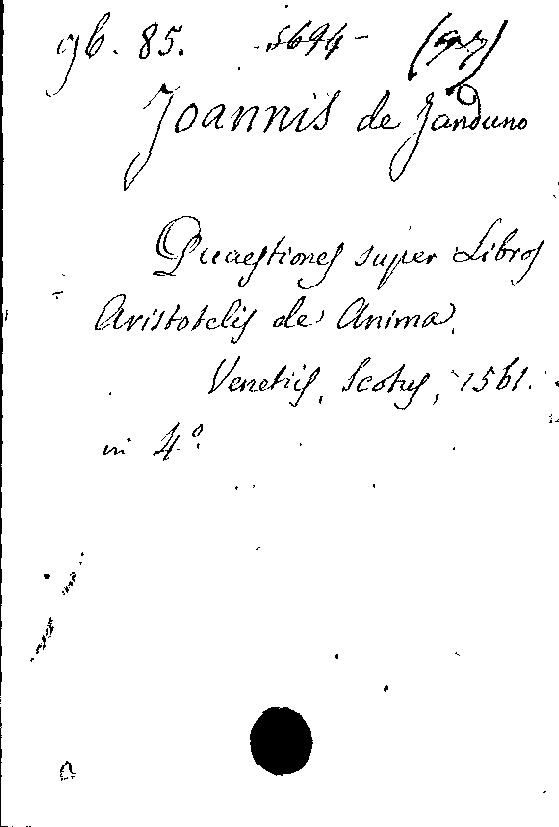 gb. 85. 5694-
Joannis de Janduno
Quaestiones super Libros
Aristotelis de Anima.
Venetiis, Scotus, 1561.
in 4º.